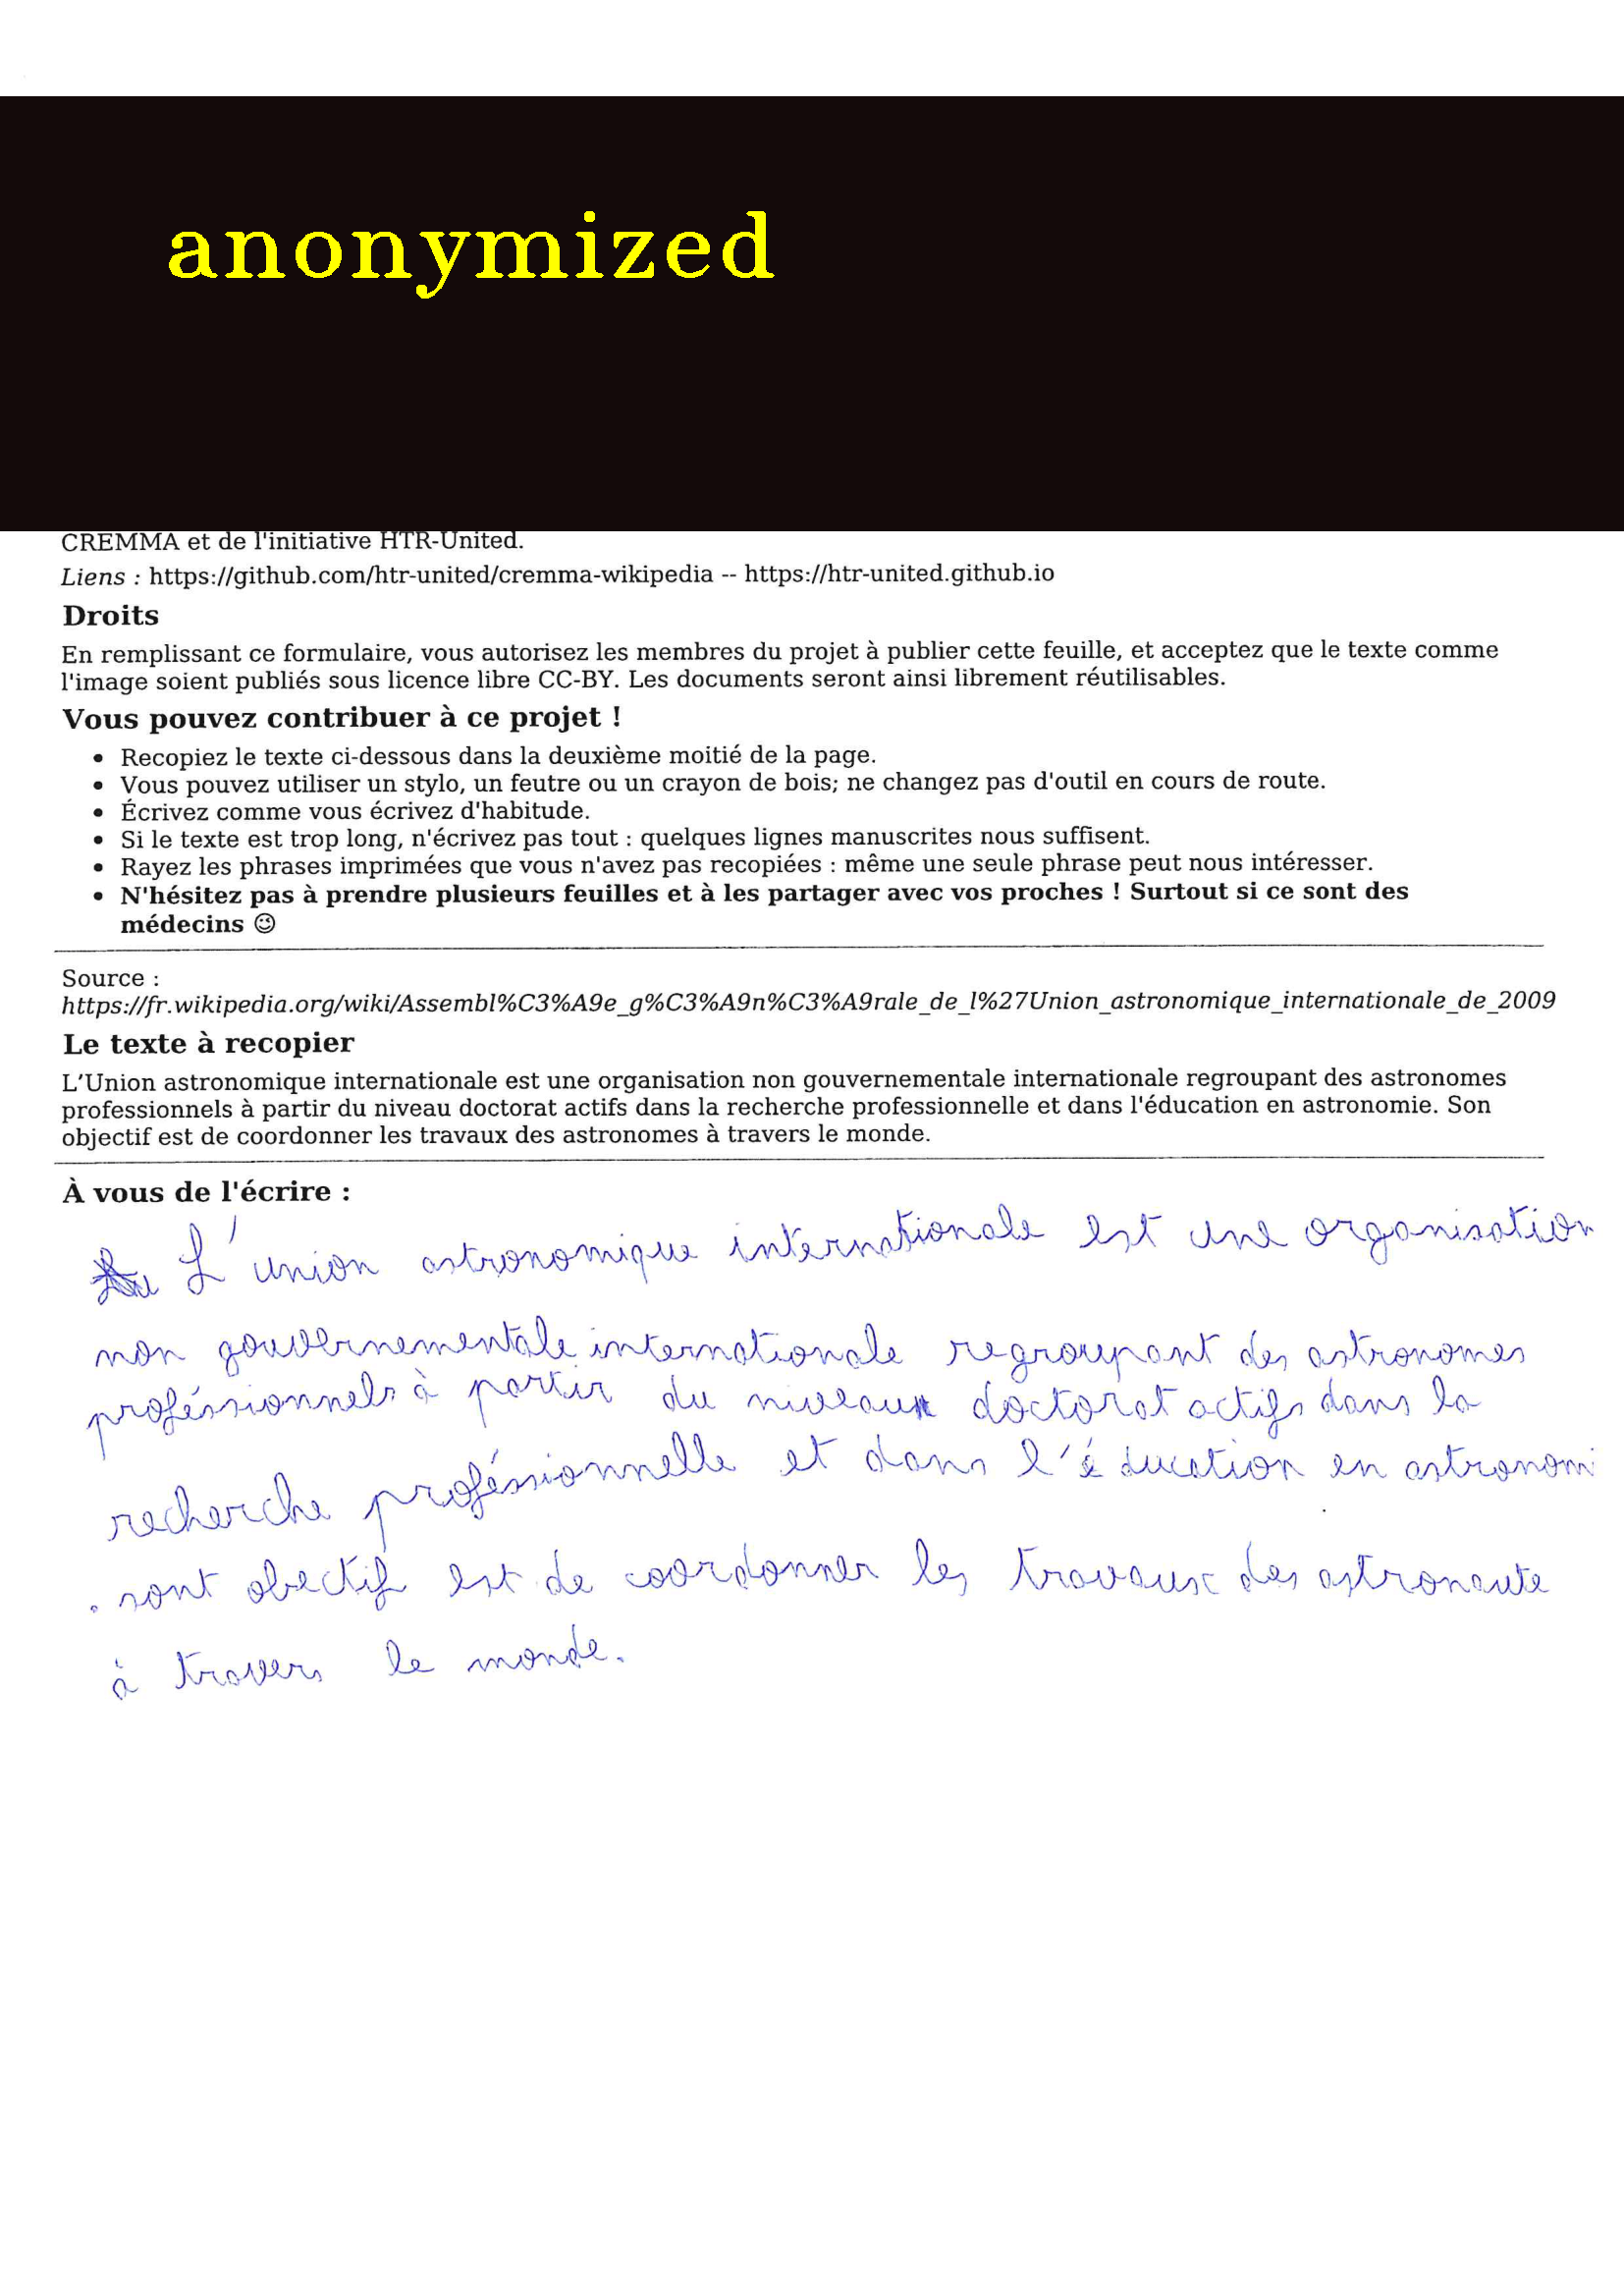 anonymized
CREMMA et de l'initiative HTR-United.
Liens : https://github.com/htr-united/cremma-wikipedia -- https://htr-united.github.io
Droits
En remplissant ce formulaire, vous autorisez les membres du projet à publier cette feuille, et acceptez que le texte comme
l'image soient publiés sous licence libre CC-BY. Les documents seront ainsi librement réutilisables.
Vous pouvez contribuer à ce projet !
• Recopiez le texte ci-dessous dans la deuxième moitié de la page.
• Vous pouvez utiliser un stylo, un feutre ou un crayon de bois; ne changez pas d'outil en cours de route.
• Écrivez comme vous écrivez d'habitude.
• Si le texte est trop long, n'écrivez pas tout : quelques lignes manuscrites nous suffisent.
• Rayez les phrases imprimées que vous n'avez pas recopiées : même une seule phrase peut nous intéresser.
• N'hésitez pas à prendre plusieurs feuilles et à les partager avec vos proches ! Surtout si ce sont des
médecins 😉
Source :
https://fr.wikipedia.org/wiki/Assembl%C3%A9e_g%C3%A9n%C3%A9rale_de_l%27Union_astronomique_internationale_de_2009
Le texte à recopier
L’Union astronomique internationale est une organisation non gouvernementale internationale regroupant des astronomes
professionnels à partir du niveau doctorat actifs dans la recherche professionnelle et dans l'éducation en astronomie. Son
objectif est de coordonner les travaux des astronomes à travers le monde.
À vous de l'écrire :
L'union astronomique internationale est une organisation
non gouvernementale internationale regroupant des astronomes
proféssionnels à partir du niveau doctorat actifs dans la
recherche proféssionnelle et dans l'éducation en astronomi
. sont obectif est de coordonner les travaux des astronaute
à travers le monde.